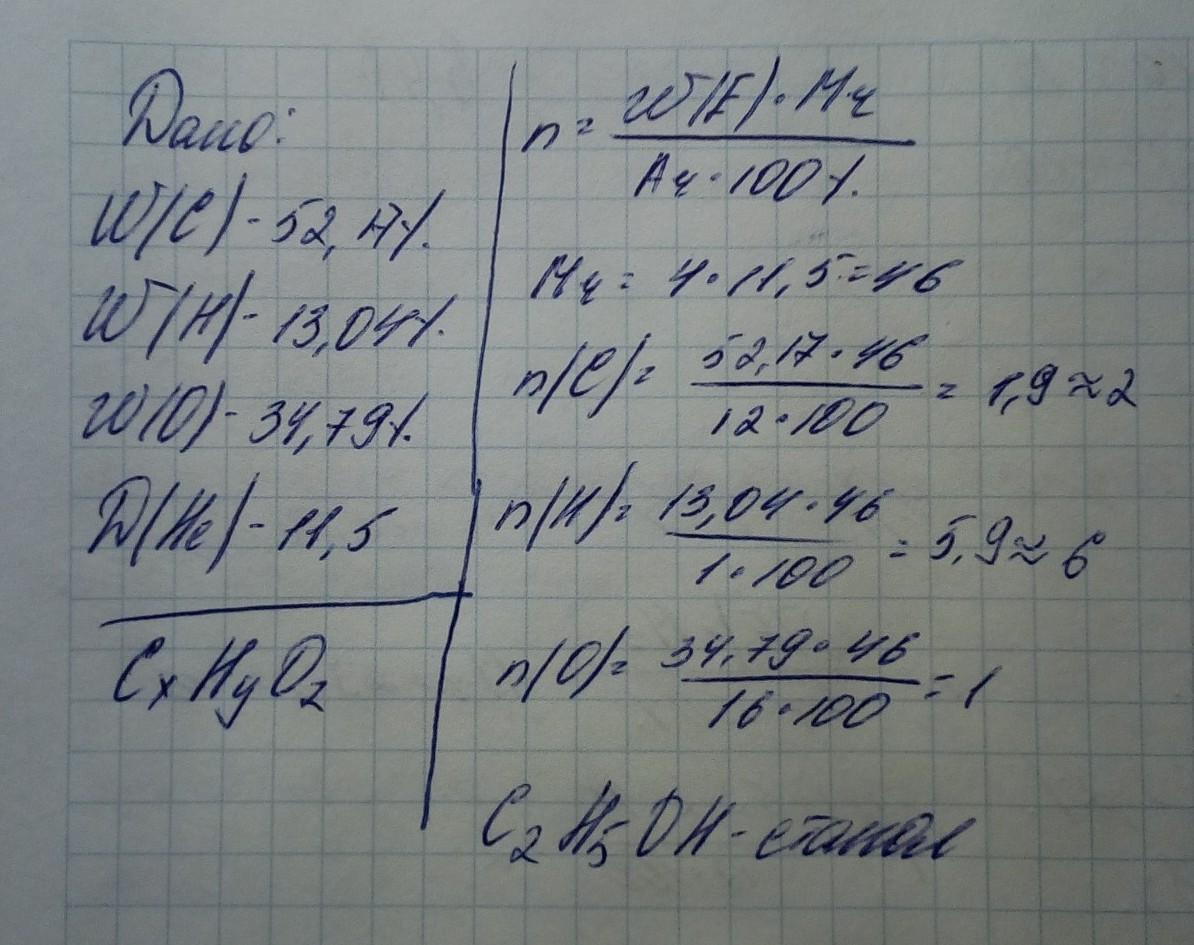 Дано:
W(C) - 52,17%.
W(H) - 13,04%.
W(O) - 34,79%.
D(He) - 11,5
CxHyOz
n = W(E)·Mч
Aч·100%.
Mч = 4·11,5=46
n(C)= 52,17·46 = 1,9≈2
12·100
n(H)= 13,04·46 = 5,9≈6
1·100
n(O)= 34,79·46 = 1
16·100
C2H5OH - етанол